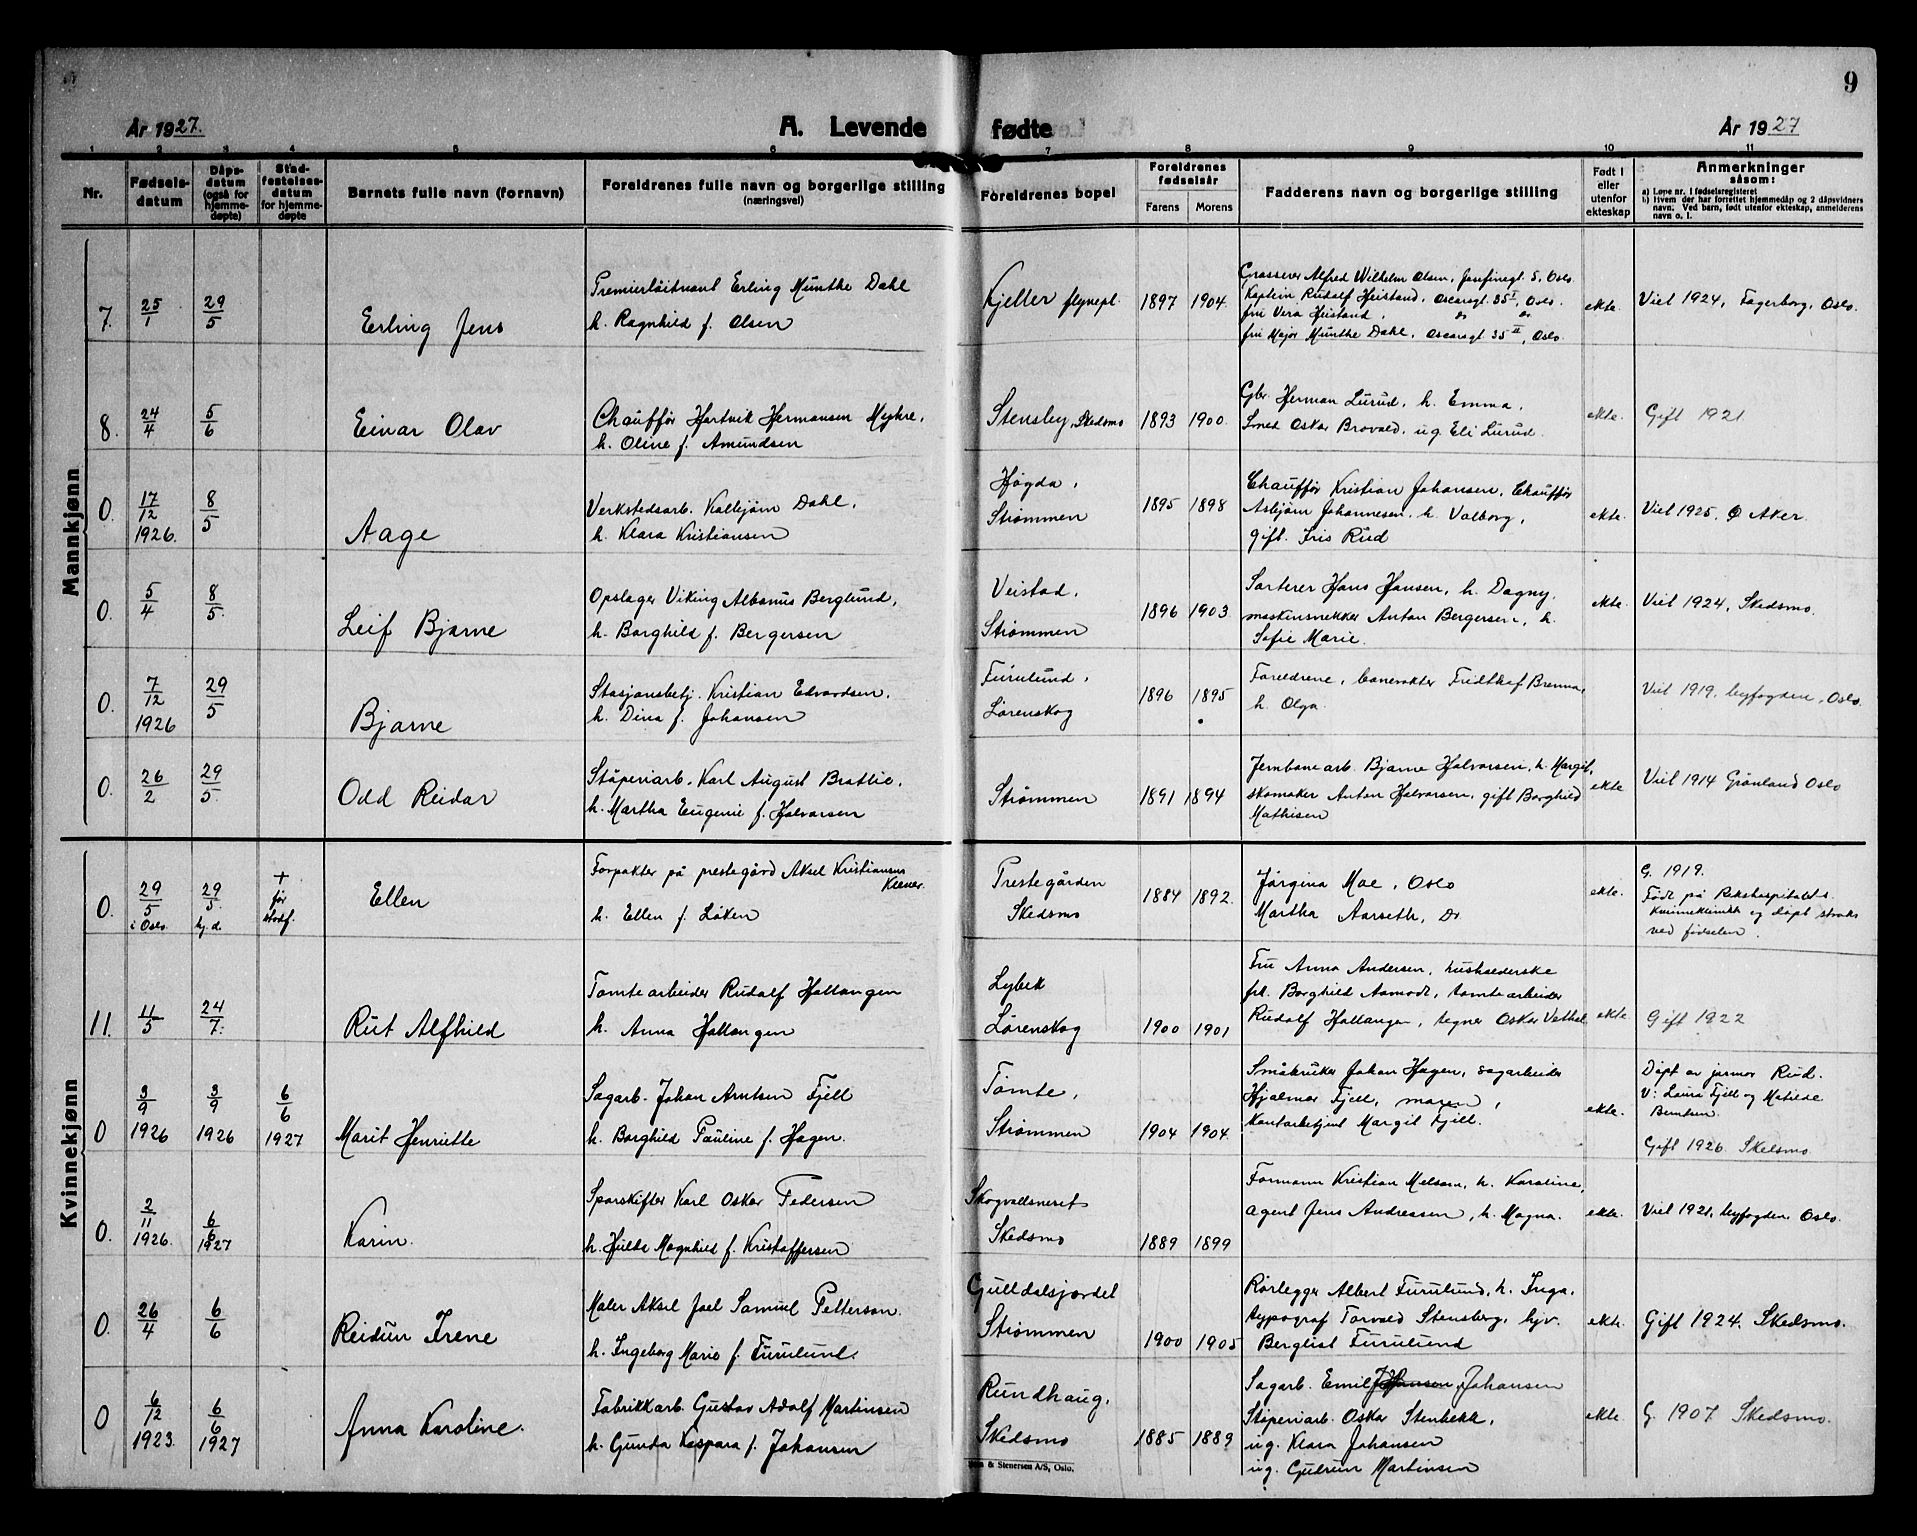 9
År 1927.
A. Levende fødte
År 1927
1 2 3 4 5 6 7 8 9 10 11
Nr.
Fødsels-
datum
Dåps-
datum
(også for
hjemme-
døpte)
Stad-
festelses-
datum
for hjemme-
døpte
Barnets fulle navn (fornavn)
Foreldrenes fulle navn og borgerlige stilling
(næringsvei)
Foreldrenes bopel
Foreldrenes
fødselsår
Farens Morens
Fadderens navn og borgerlige stilling
Født i
eller
utenfor
ekteskap
Anmerkninger
såsom:
a) Løpe nr. i fødselsregisteret
b) Hvem der har forrettet hjemmedåp og 2 dåpsvidners
navn. Ved barn, født utenfor ekteskap, anmelderens
navn o. l.
Mannkjønn
7. 25/1 29/5 Erling Jens
Premierløitnant Erling Munthe Dahl
h. Ragnhild f. Olsen
Kjeller flyvepl. 1897 1904
Grosserer Alfred Wilhelm Olsen, Josefinegt. 5, Oslo
Kaptein Rudolf Heistand, Oscarsgt. 35 I, Oslo.
fru Vera Heistand, do do
fru Major Munthe Dahl, Oscarsgt. 35 II, Oslo.
ekte. Viet 1924, Fagerborg, Oslo.
8. 24/4 5/6 Einar Olav
Chauffør Hartvik Hermansen Myhre,
h. Oline f. Amundsen
Stensby, Skedsmo 1893 1900
Gbr. Herman Lurud, h. Emma,
Smed Oskar Brovold, ug. Eli Lurud.
ekte. Gift 1921
0. 17/12 1926. 8/5 Aage
Verkstedsarb. Kallejørn Dahl,
h. Klara Kristiansen
Høgda,
Strømmen 1895 1898
Chauffør Kristian Johansen, Chauffør
Asbjørn Johannesen, h. Valborg,
gift. Iris Rud
ekte. Viet 1925, Ø Aker.
0. 5/4 8/5 Leif Bjarne
Opslager Viking Albanus Berglund,
h. Borghild f. Bergersen
Veistad,
Strømmen 1896 1903
Sorterer Hans Hansen, h. Dagny,
maskinsnekker Anton Bergersen, h.
Sofie Marie.
ekte. Viet 1924, Skedsmo.
0. 7/12 1926 29/5 Bjarne
Stasjonsbetj. Kristian Edvardsen,
h. Dina f. Johansen
Furulund,
Lørenskog 1896 1895
Foreldrene, banevokter Fridthof Brenna,
h. Olga.
Viet 1919, byfogden, Oslo.
0. 26/2 29/5. Odd Reidar
Støperiarb. Karl August Brattlie,
h. Martha Eugenie f. Halvorsen
Strømmen 1891 1894
Jernbanearb. Bjarne Halvorsen, h. Margit,
skomaker Anton Halvorsen, gift Borghild
Mathisen
ekte Viet 1914 Grønland Oslo
Kvinnekjønn
0. 29/5 i Oslo 29/5. hj.d. + før stadf. Ellen
Forpakter på prestegård Aksel Kristiansen
Klever.
h. Ellen f. Løken
Prestegården
Skedsmo 1884 1892.
Jørgina Moe, Oslo
Martha Aarseth, Do
ekte. G. 1919.
Født på Rikshospitalets
Kvinneklinikk og døpt straks
ved fødselen.
11. 11/5 24/7. Rut Alfhild
Tomtearbeider Rudolf Hallangen
h. Anna Hallangen
Lybek
Lørenskog 1900 1901
Fru Anna Andersen, husholderske
frk. Borghild Aamodt, tomtearbeider
Rudolf Hallangen, tegner Oskar Vethal
ekte. Gift 1922
0 3/9 1926 3/9 1926 6/6 1927 Marit Henriette
Sagarb. Johan Arntsen Fjell
h. Borghild Pauline f. Hagen.
Tomte,
Strømmen 1904 1904
Småbruker Johan Hagen, sagarbeider
Hjalmar Fjell, maren,
Kontorbetjent Margit Fjell.
ekte. Døpt av jormor Rud.
V: Laura Fjell og Matilde
Berntsen.
Gift 1926 Skedsmo
0. 2/11 1926. 6/6 1927 Karin.
Sporskifter Karl Oskar Pedersen
h. Hulda Magnhild f. Kristoffersen
Skogvollsneret
Skedsmo 1889 1899
Formann Kristian Melsom, h. Karoline,
agent Jens Andressen, h. Magna.
ekte. Viet 1921, byfogden Oslo.
0. 26/4 6/6 Reidun Irene
Maler Aksel Joel Samuel Petterson
h. Ingeborg Marie f. Furulund.
Gulldalsjordet
Strømmen 1900 1905
Rørlegger Albert Furulund, h. Inga,
typograf Torvald Stensberg, hjv.
Berglist Furulund
ekte. Gift 1924, Skedsmo.
0 6/12 1923. 6/6 1927 Anna Karoline.
Fabrikkarb. Gustav Adolf Martinsen
h. Gunda Kaspara f. Johansen
Rundhaug,
Skedsmo 1885 1889
Sagarb. Emil Johansen
Støperiarb. Oskar Stenbekk,
ug. Klara Johansen
ug. Gudrun Martinsen
ekte. G. 1907 Skedsmo.
& Stenersen A/S, Oslo.